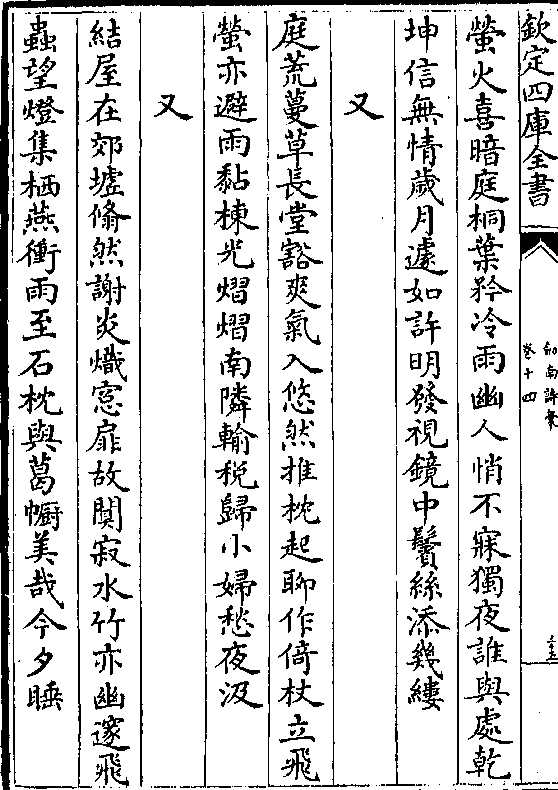 欽定四庫全書
劍南詩稾
卷十四
三十五
螢火喜暗庭桐葉矜冷雨幽人悄不寐獨夜誰與處乾
坤信無情歲月遽如許明發視鏡中鬢絲添幾縷
又
庭荒蔓草長堂豁爽氣入悠然推枕起聊作倚杖立飛
螢亦避雨黏棟光熠熠南隣輸稅歸小婦愁夜汲
又
結屋在郊墟翛然謝炎熾窓扉故闃寂水竹亦幽邃飛
蟲望燈集栖燕衝雨至石枕與葛㡡美哉今夕睡